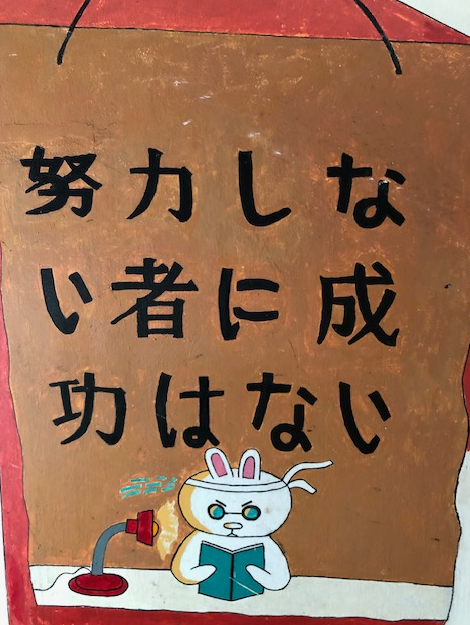 努力しな
い者に成
功はない